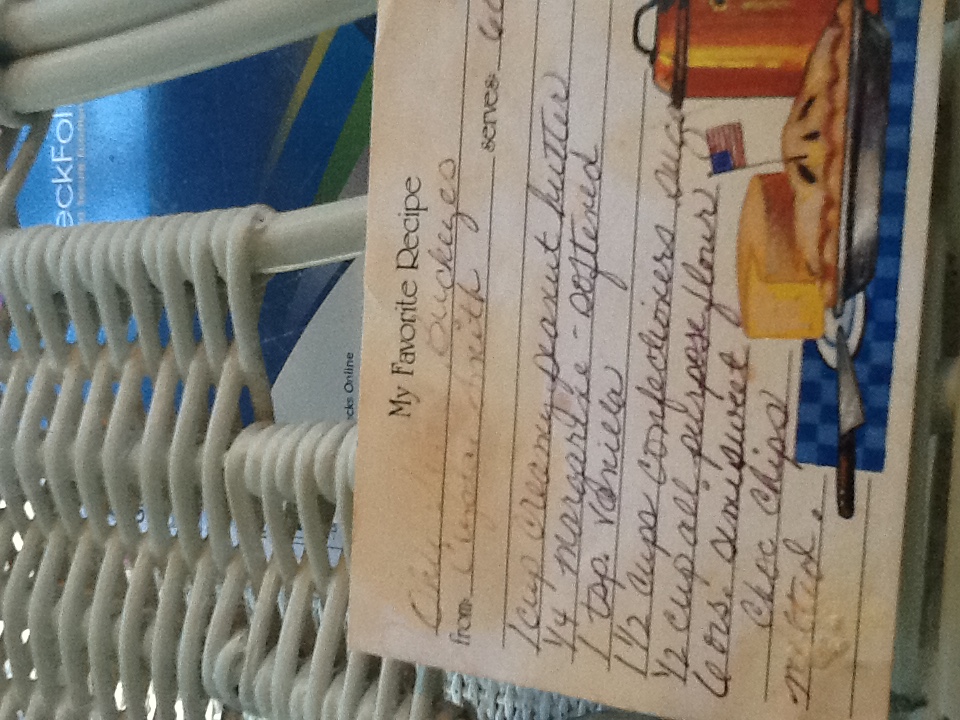 My Favorite Recipe
Buckeyes
from: Smith serves 60
1 cup creamy peanut butter
1/4 margarine - softened
1 tsp. vanilla
1 1/2 cups confectioners sug
1/2 cup all purpose flour
6 ozs. semi sweet
choc chips
melted.
eckFor
cks Online